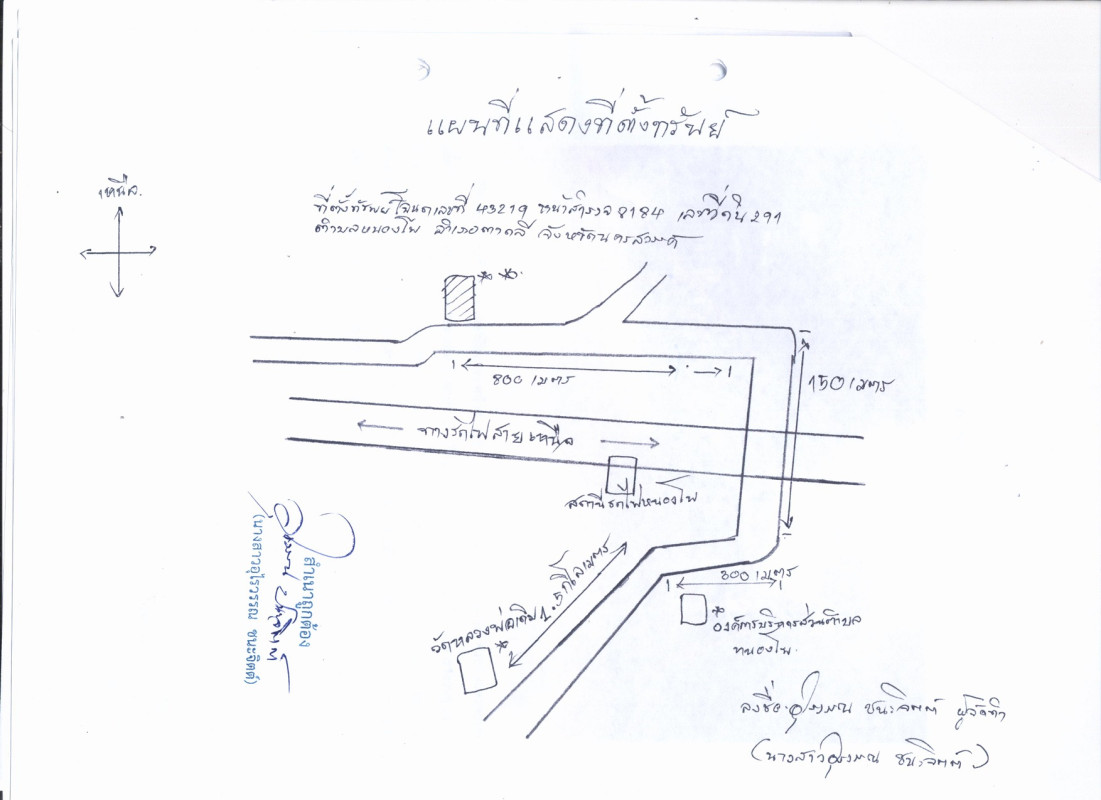 แผนที่แสดงที่ตั้งทรัพย์
เหนือ.
ที่ตั้งทรัพย์ โฉนดเลขที่ 43219 หน้าสำรวจ 8184 เลขที่ดิน 291
ตำบลหนองโพ อำเภอตาคลี จังหวัดนครสวรรค์
800 เมตร
150 เมตร
ทางรถไฟสายเหนือ
สถานีรถไฟหนองโพ
1.5 กิโลเมตร
300 เมตร
วัดหลวงพ่อเดิม
องค์การบริหารส่วนตำบล
หนองโพ.
สำเนาถูกต้อง
(นางสาวอุไรวรรณ ชนะจิตต์)
ลงชื่อ อุไรวรรณ ชนะจิตต์ ผู้จัดทำ
(นางสาวอุไรวรรณ ชนะจิตต์)